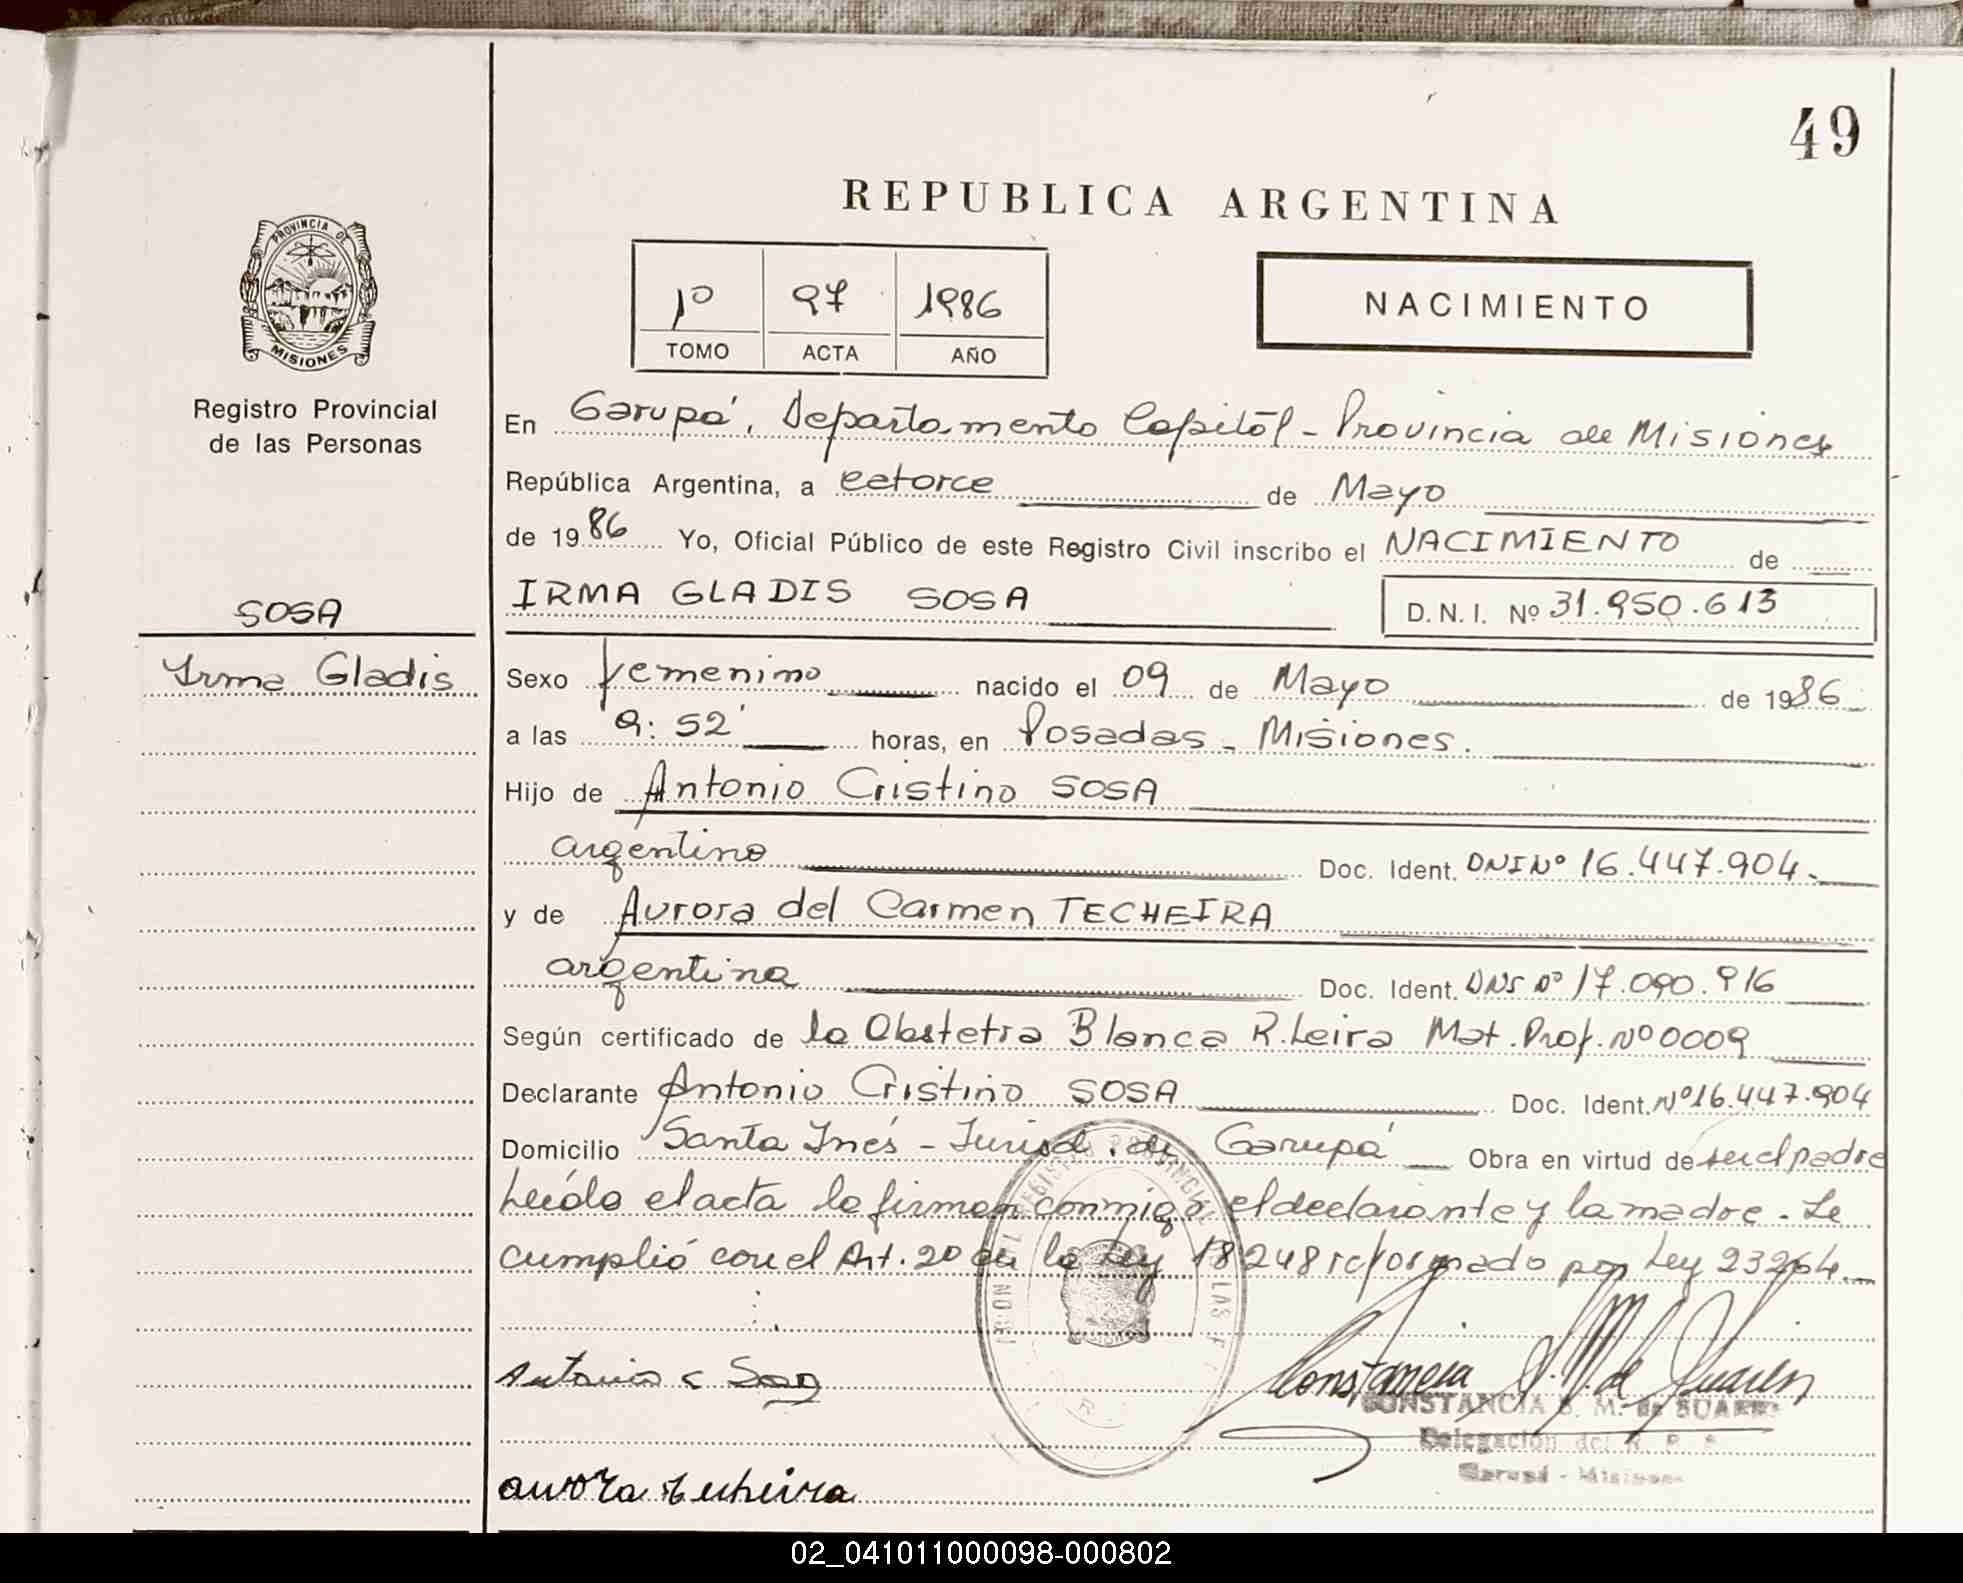 49
REPUBLICA ARGENTINA
PROVINCIA DE
MISIONES
Registro Provincial
de las Personas
1º 97 1986
TOMO ACTA AÑO
NACIMIENTO
En Garupá, Departamento Capital - Provincia de Misiones
República Argentina, a catorce de Mayo
de 1986 Yo, Oficial Público de este Registro Civil inscribo el NACIMIENTO de
IRMA GLADIS SOSA D.N.I. Nº 31.950.613
SOSA
Irma Gladis
Sexo femenino nacido el 09 de Mayo de 1986
a las 9:52' horas, en Posadas - Misiones.
Hijo de Antonio Cristino SOSA
argentino Doc. Ident. DNI Nº 16.447.904.
y de Aurora del Carmen TECHEIRA
argentina Doc. Ident. DNI Nº 17.090.916
Según certificado de la Obstetra Blanca R. Leira Mat. Prof. Nº 0009
Declarante Antonio Cristino SOSA Doc. Ident. Nº 16.447.904
Domicilio Santa Inés - Jurisd. de Garupá Obra en virtud de ser el padre
Leída el acta la firman conmigo el declarante y la madre. Se
cumplió con el Art. 20 de la Ley 18248 reformado por Ley 23264.
Antonio C Sosa
Constancia S. M. de Suarez
CONSTANCIA S. M. de SUAREZ
Delegación del R. P. P.
Garupá - Misiones
aurora techeira
02_041011000098-000802